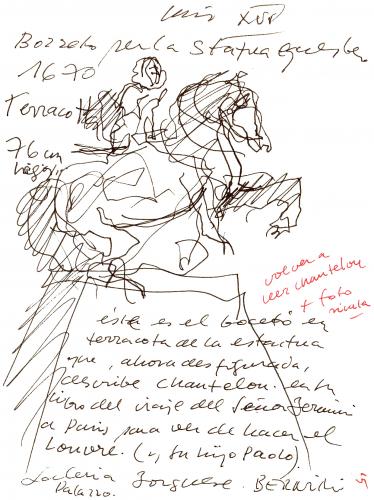 Luis XVI
Bozzeto per la Statua equestre
1670
Terracota
76 cm
volver a
leer chantelou
+ foto
ésta es el boceto en
terracota de la estatua
que, ahora desfigurada,
describe Chantelou. en su
libro del viaje del Señor Bernini
a Paris para ver de hacer el
Louvre. (y su hijo Paolo)
Galleria Borghese. BERNINI
Palazzo.